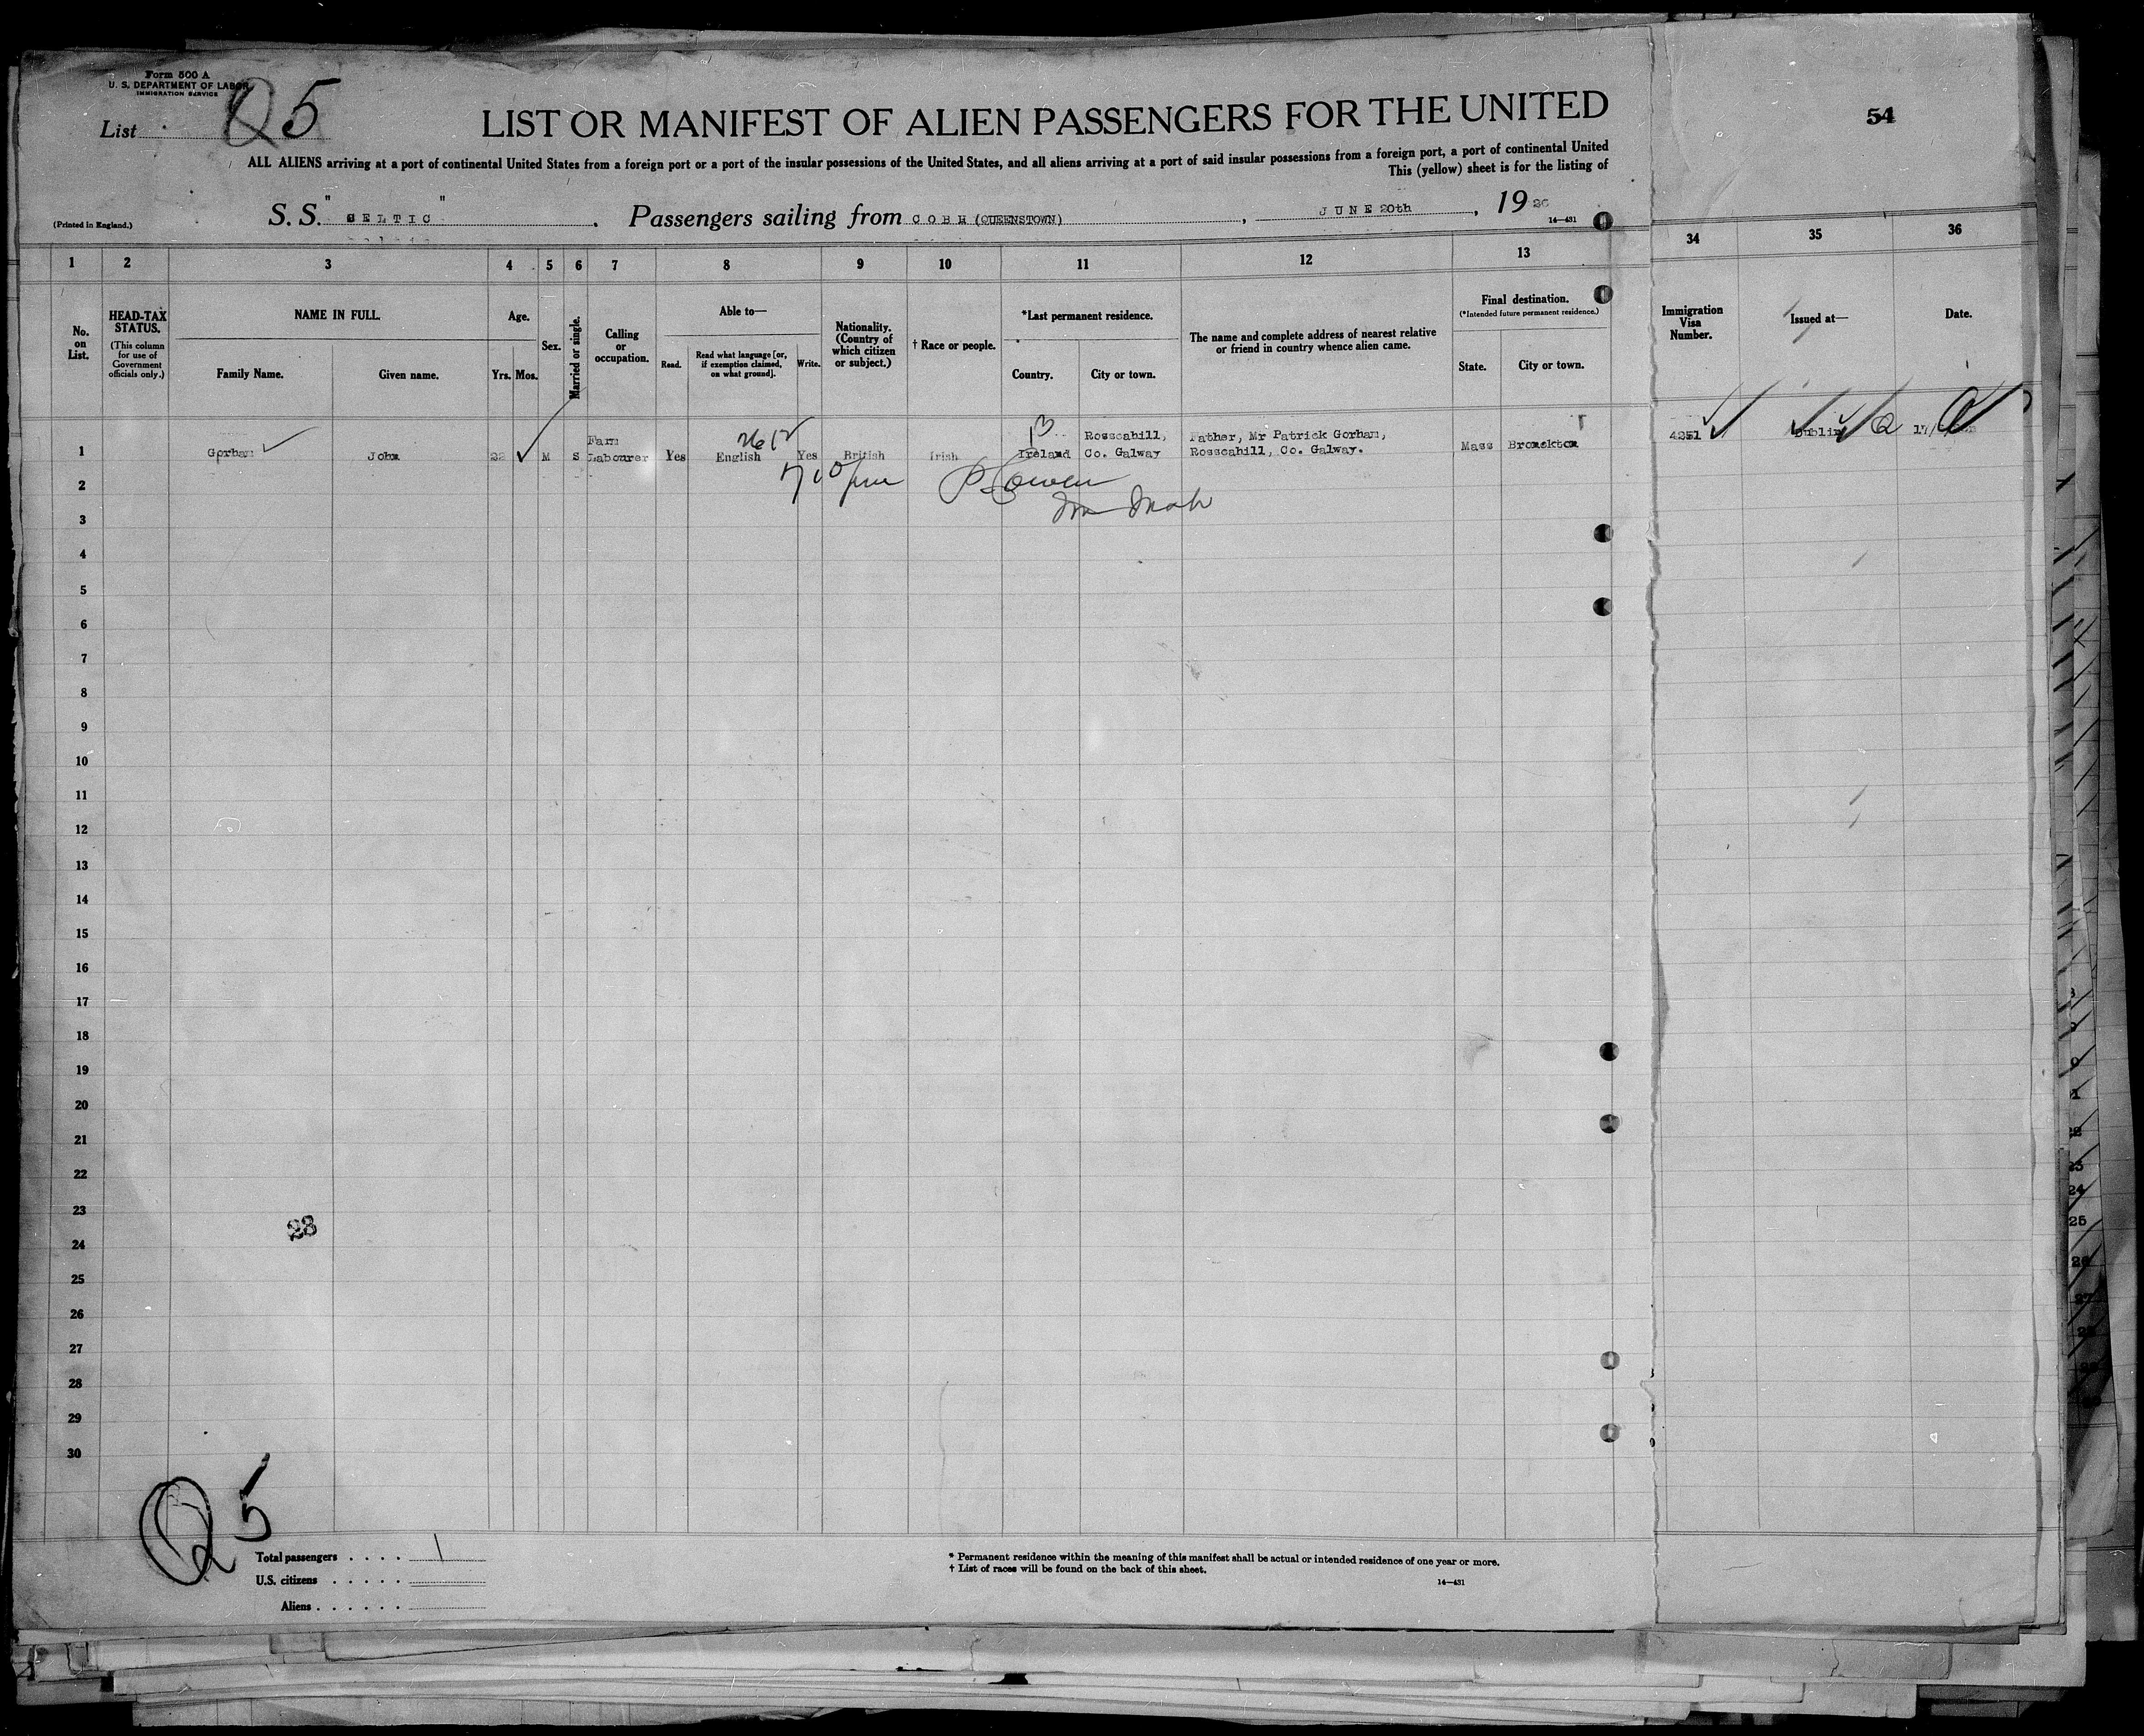 Form 500 A
U. S. DEPARTMENT OF LABOR
IMMIGRATION SERVICE
List Q5
LIST OR MANIFEST OF ALIEN PASSENGERS FOR THE UNITED
54
ALL ALIENS arriving at a port of continental United States from a foreign port or a port of the insular possessions of the United States, and all aliens arriving at a port of said insular possessions from a foreign port, a port of continental United
This (yellow) sheet is for the listing of
(Printed in England.)
S. S. "CELTIC". Passengers sailing from COBH (QUEENSTOWN), JUNE 20th, 1926
14—431
1 2 3 4 5 6 7 8 9 10 11 12 13 34 35 36
No. on List.
HEAD-TAX STATUS.
(This column for use of Government officials only.)
NAME IN FULL.
Family Name. Given name.
Age.
Yrs. Mos.
Sex.
Married or single.
Calling or occupation.
Able to—
Read. Read what language [or, if exemption claimed, on what ground]. Write.
Nationality. (Country of which citizen or subject.)
† Race or people.
*Last permanent residence.
Country. City or town.
The name and complete address of nearest relative or friend in country whence alien came.
Final destination.
(*Intended future permanent residence.)
State. City or town.
Immigration Visa Number.
Issued at—
Date.
1 Gorham John 22 M S Farm Labourer Yes English Yes British Irish Ireland Rosscahill, Co. Galway Father, Mr Patrick Gorham, Rosscahill, Co. Galway. Mass 4251 Dublin
2
3
4
5
6
7
8
9
10
11
12
13
14
15
16
17
18
19
20
21
22
23
28
24
25
26
27
28
29
30
Q5
Total passengers . . . . 1
U.S. citizens . . . . .
Aliens . . . . . .
* Permanent residence within the meaning of this manifest shall be actual or intended residence of one year or more.
† List of races will be found on the back of this sheet.
14—431